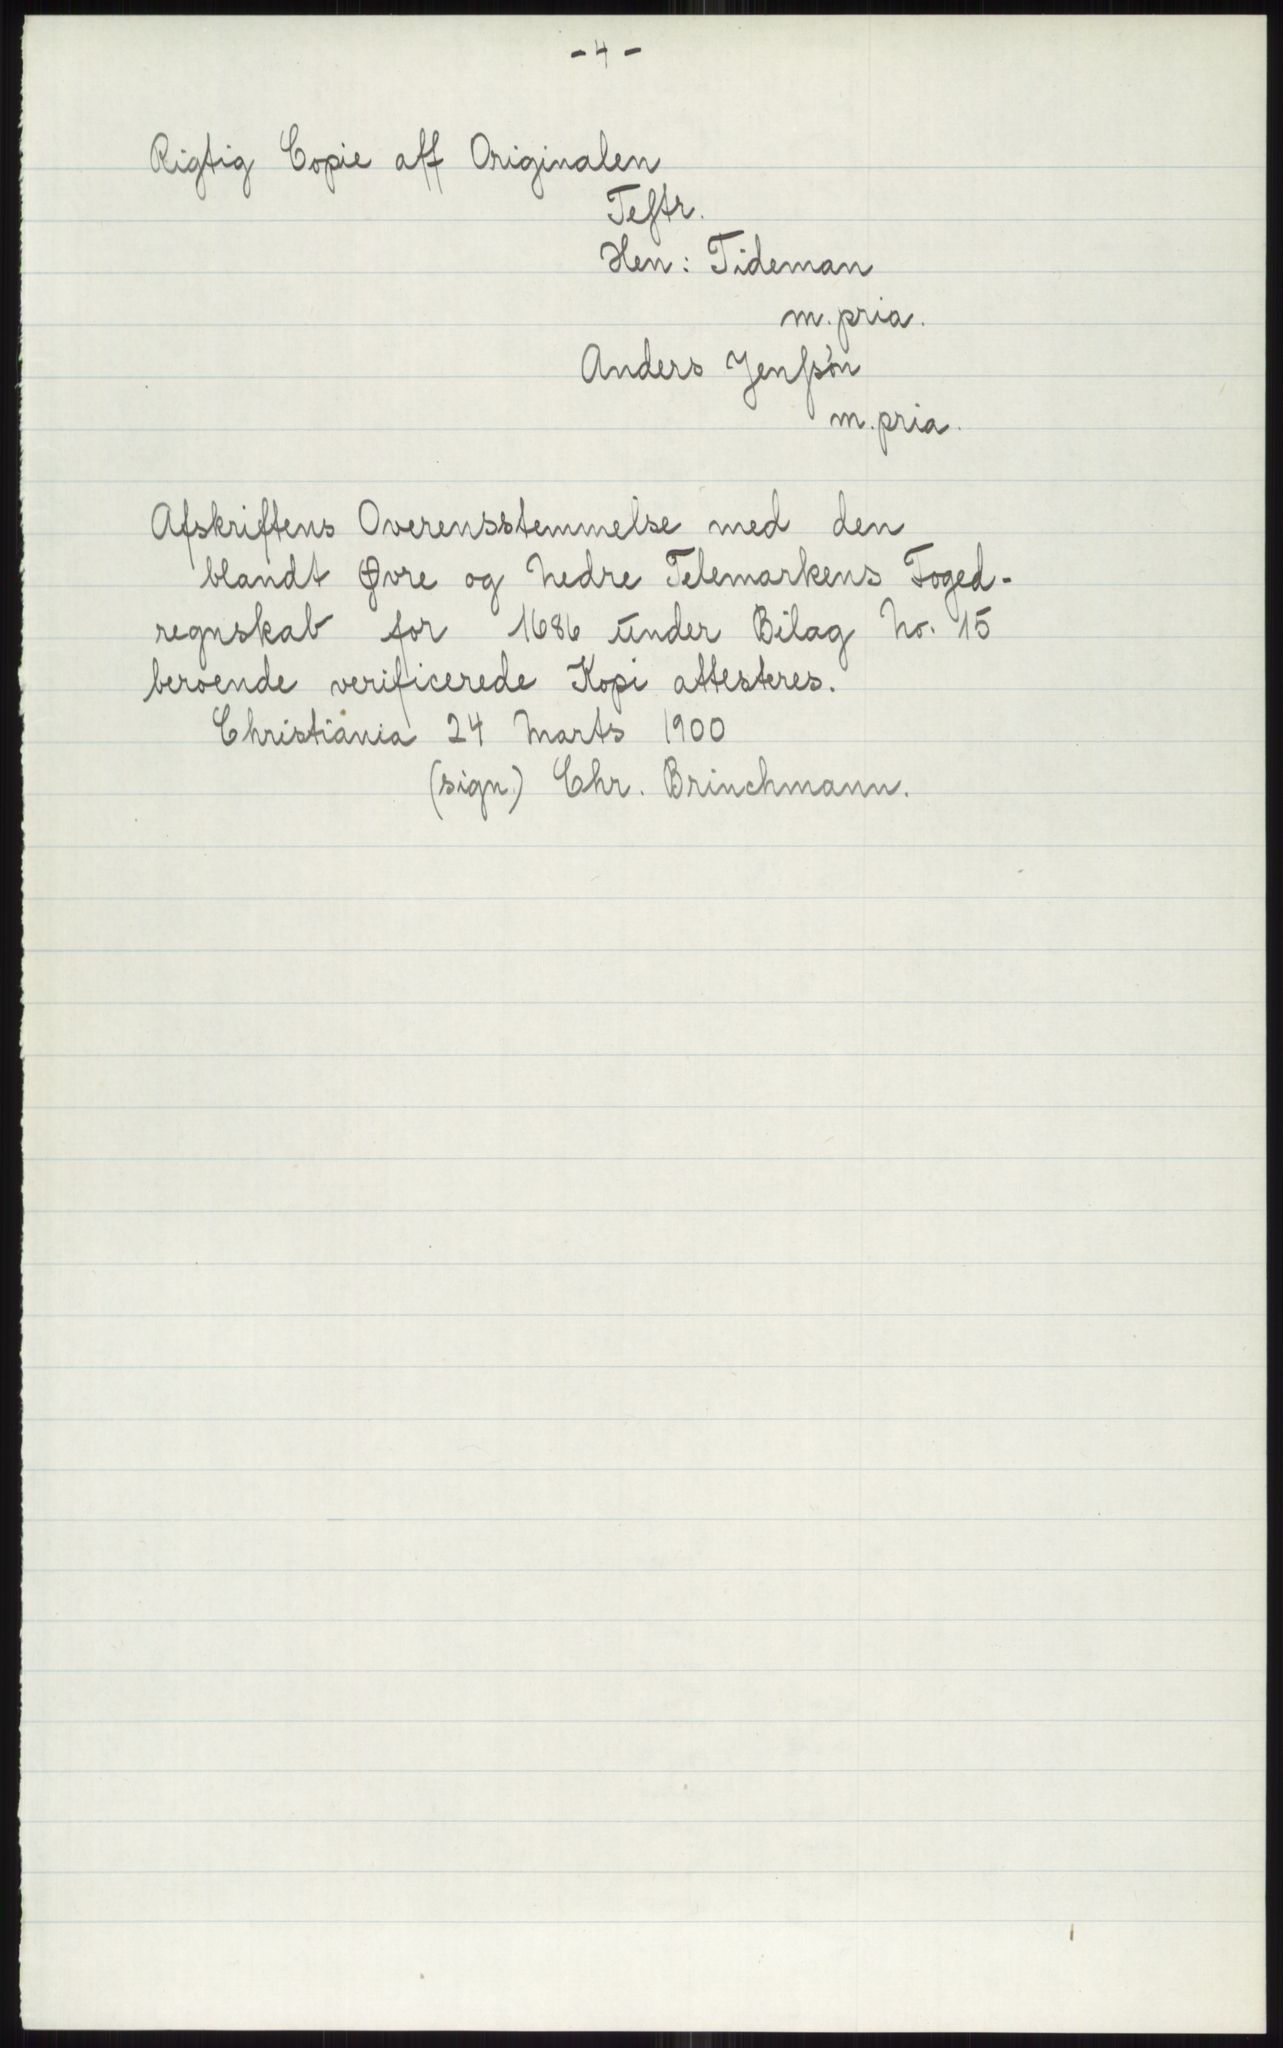 - 4 -
Rigtig Copie aff Originalen
Teſtr.
Hen: Tideman
m. pria.
Anders Jenſsøn
m. pria.
Afskriftens Overensstemmelse med den
blandt Øvre og Nedre Telemarkens Foged-
regnskab for 1686 under Bilag No. 15
beroende verificerede Kopi attesteres.
Christiania 24 Marts 1900
(sign.) Chr. Brinchmann.